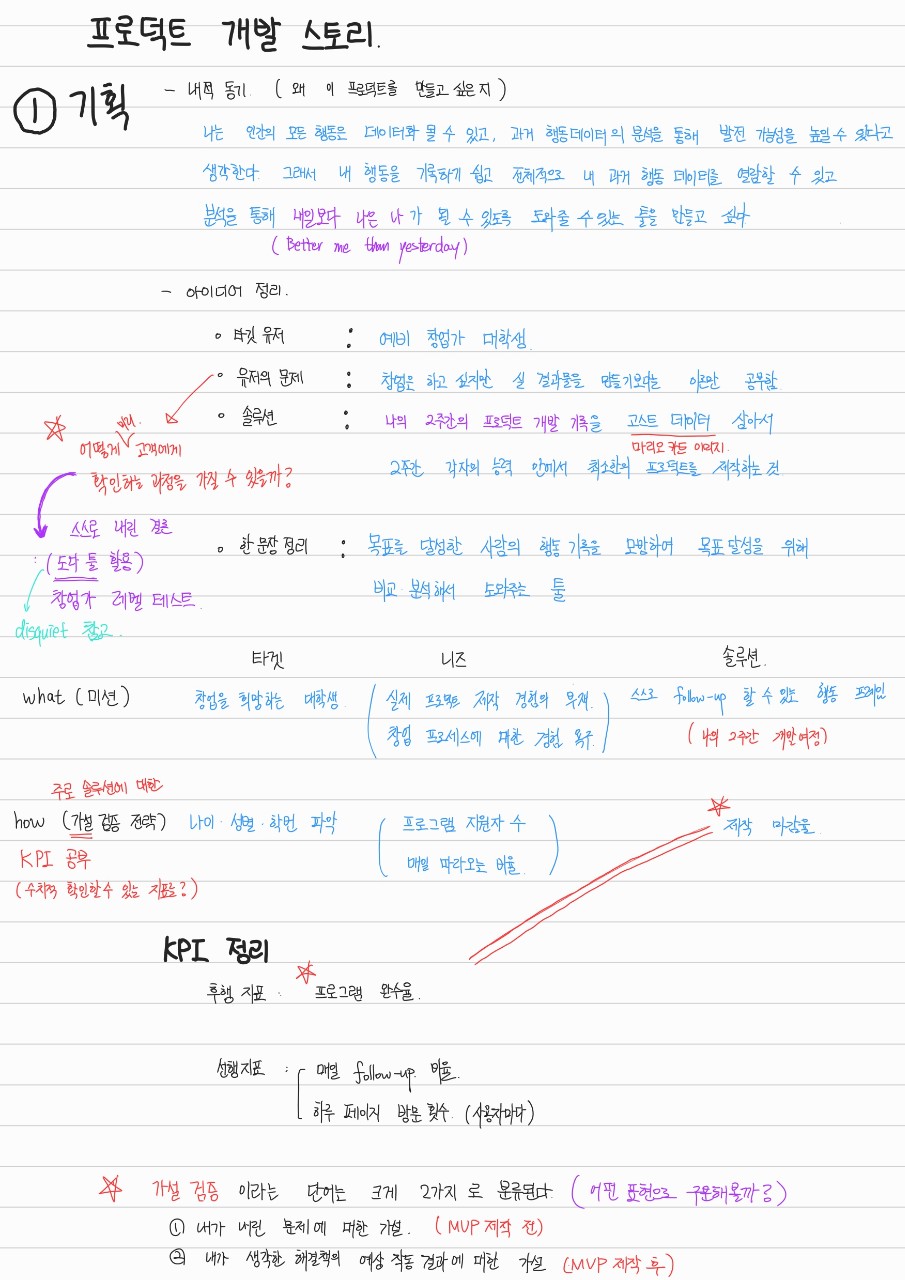 프로덕트 개발 스토리.
① 기획
- 내적 동기. ( 왜 이 프로덕트를 만들고 싶은지 )
나는 인간의 모든 행동은 데이터화 될 수 있고, 과거 행동데이터의 분석을 통해 발전 가능성을 높일 수 있다고
생각한다. 그래서 내 행동을 기록하기 쉽고 전체적으로 내 과거 행동 데이터를 열람할 수 있고
분석을 통해 내일보다 나은 나가 될 수 있도록 도와줄 수 있는 툴을 만들고 싶다
( Better me than yesterday )
- 아이디어 정리.
◦ 타깃 유저 : 예비 창업가 대학생.
◦ 유저의 문제 : 창업은 하고 싶지만 실 결과물을 만들기보다는 이론만 공부함
◦ 솔루션 : 나의 2주간의 프로덕트 개발 기록을 고스트 데이터 삼아서
마리오 카트 이미지.
2주간 각자의 능력 안에서 최소한의 프로덕트를 제작하는 것
☆ 어떻게 고객에게
확인하는 과정을 가질 수 있을까?
스스로 내린 결론
: (도다 툴 활용)
창업가 레벨 테스트.
disquiet 참고.
◦ 한 문장 정리 : 목표를 달성한 사람의 행동 기록을 모방하여 목표 달성을 위해
비교·분석해서 도와주는 툴
타겟 니즈 솔루션.
what (미션) 창업을 희망하는 대학생. ( 실제 프로덕트 제작 경험의 부재. 스스로 follow-up 할 수 있는 행동 프레임
창업 프로세스에 대한 경험 욕구. ) ( 나의 2주간 개발여정)
주로 솔루션에 대한
how (가설 검증 전략) 나이·성별·학번 파악 ( 프로그램 지원자 수 ☆ 제작 마감율.
매일 따라오는 비율. )
KPI 공부
(수치적 확인할 수 있는 지표로?)
KPI 정리
후행 지표 : ☆ 프로그램 완수율.
선행지표 : 매일 follow-up 비율.
하루 페이지 방문 횟수. (사용자마다)
☆ 가설 검증 이라는 단어는 크게 2가지로 분류된다. ( 어떤 표현으로 구분해볼까? )
① 내가 내린 문제에 대한 가설. ( MVP 제작 전)
② 내가 생각한 해결책의 예상 작동 결과에 대한 가설 (MVP 제작 후)